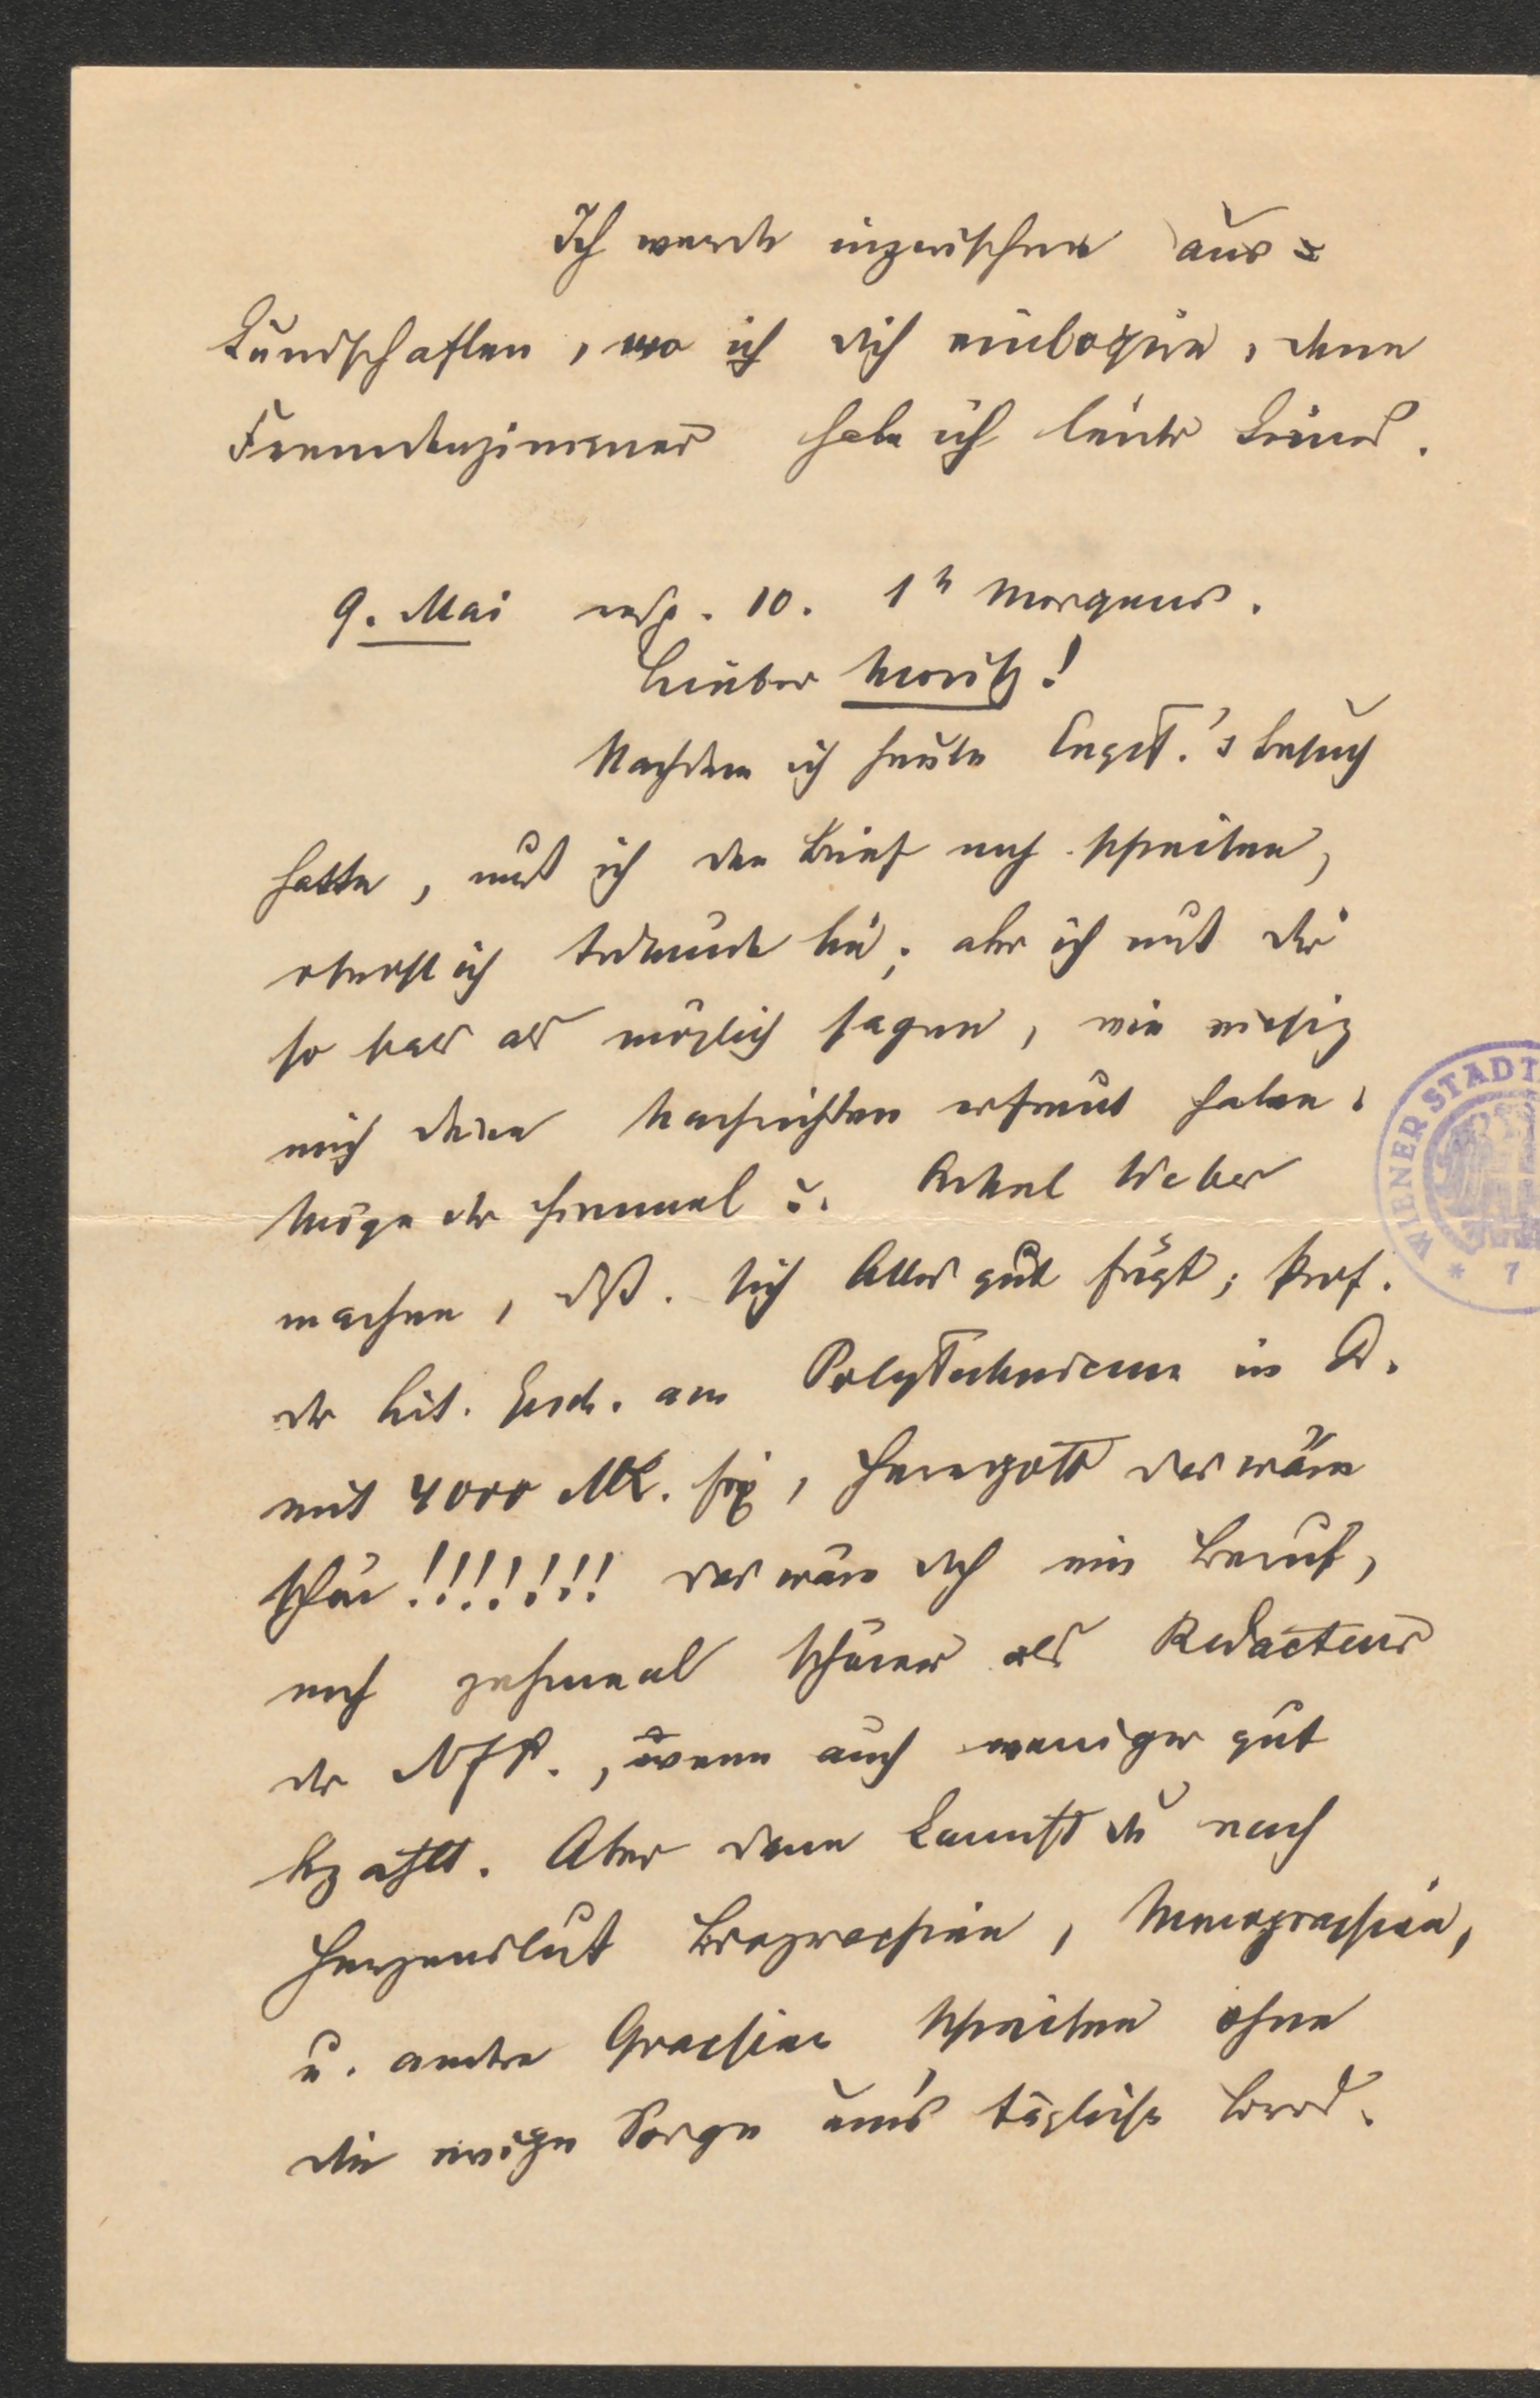 Ich werde inzwischen aus=
kundschaften, wo ich dich einlogire, denn
Fremdenzimmer habe ich leider keines.
9. Mai resp. 10. 1h Morgens.
Lieber Moritz!
Nachdem ich heute Besuch
hatte, muß ich den Brief noch schreiben,
obwohl ich todmüde bin; aber ich muß dir
so bald als möglich sagen, wie riesig
mich deine Nachrichten erfreut haben.
Möge der Himmel u. Onkel Weber
machen, dß. sich Alles gut fügt; Prof.
der Lit. Gesch. am Polytechnicum in D.
mit 4000 Mk. fix, Herrgott das wäre
schön!!!!!!! das wäre doch ein Beruf,
noch zehnmal schöner als Redacteur
der NFP., wenn auch weniger gut
bezahlt. Aber dann kannst du nach
Herzenslust Biographien, Monographien,
u. andre Graphien schreiben ohne
die ewige Sorge um's tägliche Brod.
WIENER STADT
* 7